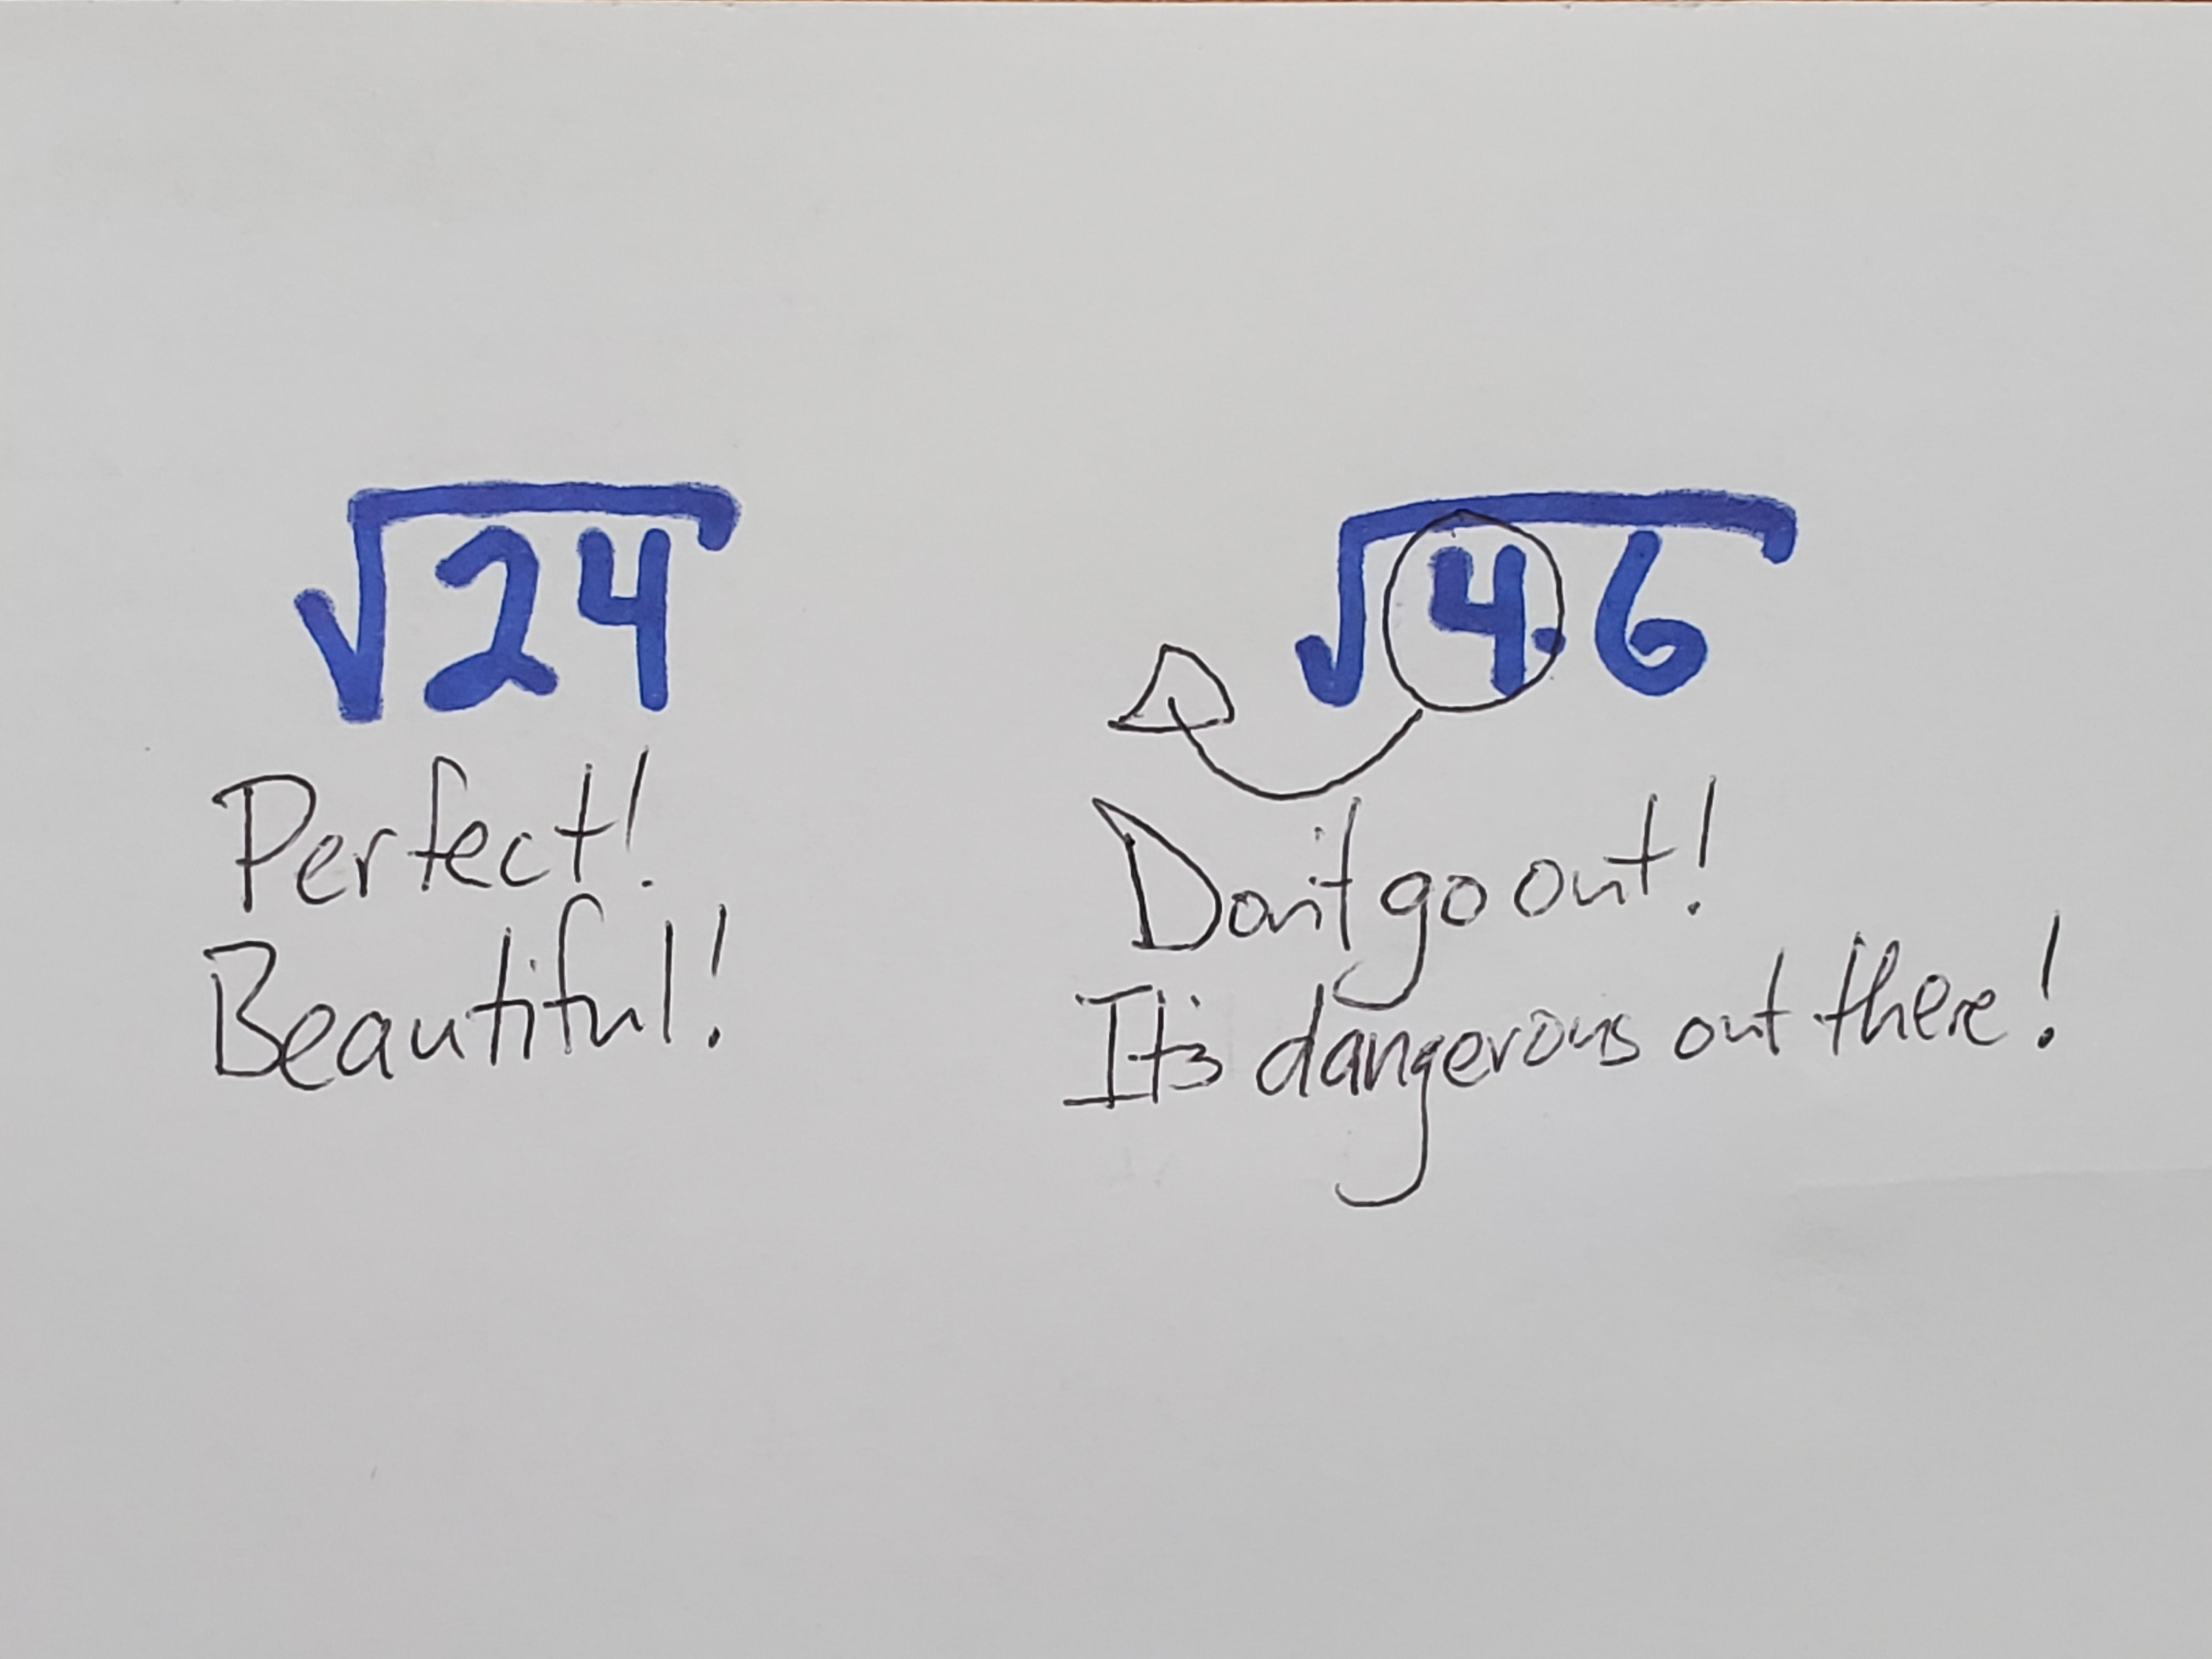 √24
Perfect!
Beautiful!
√4·6
Don't go out!
It's dangerous out there!